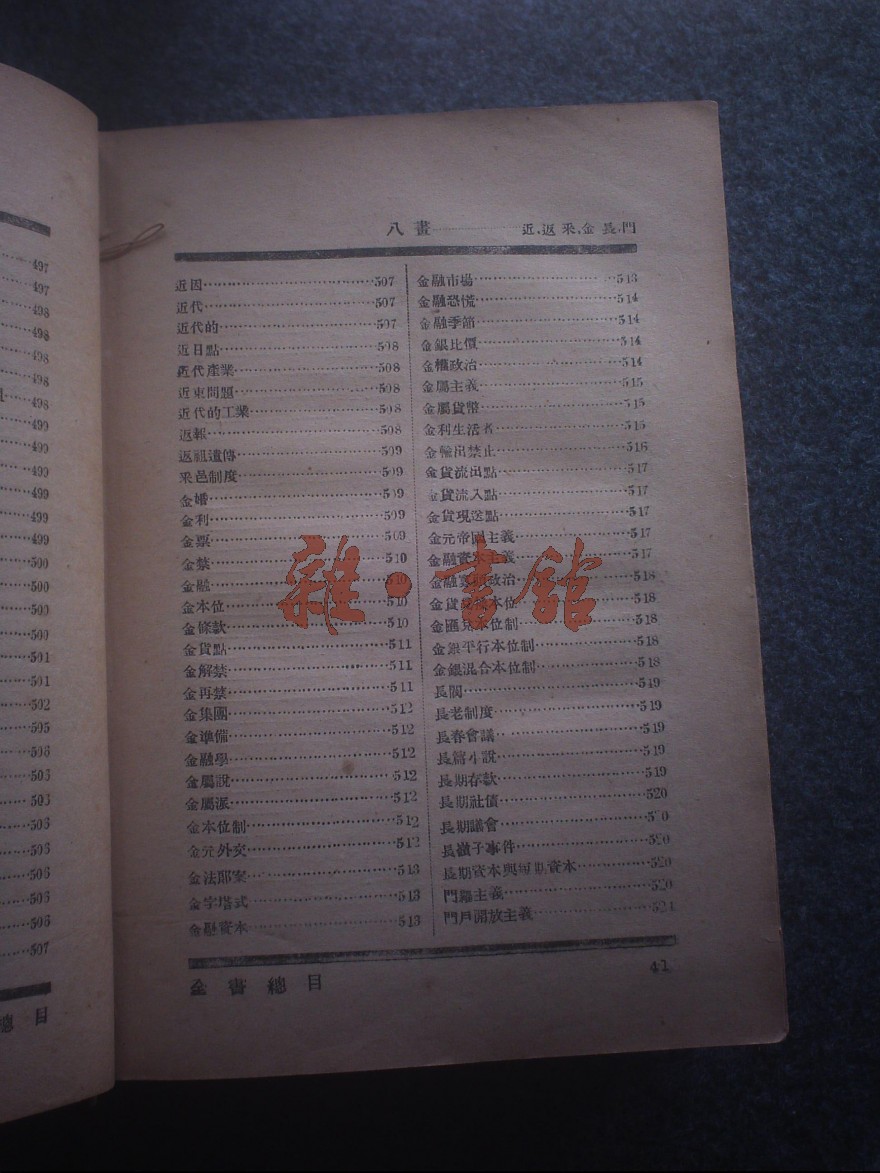 497
497
498
498
498
498
498
499
499
499
499
499
499
500
500
500
500
501
501
502
505
506
503
503
503
506
506
506
506
507
總目
八畫 近,返,釆,金,長,門
近因 507
近代 507
近代的 507
近日點 508
近代產業 508
近東問題 508
近代的工業 508
返報 508
返祖遺傳 509
釆邑制度 509
金婚 509
金利 509
金票 509
金禁 510
金融 510
金本位 510
金條款 510
金貨點 511
金解禁 511
金再禁 511
金集團 512
金準備 512
金融學 512
金屬說 512
金屬派 512
金本位制 512
金元外交 512
金法郎案 513
金字塔式 513
金融資本 513
金融市場 513
金融恐慌 514
金融季節 514
金銀比價 514
金權政治 514
金屬主義 515
金屬貨幣 515
金利生活者 515
金輸出禁止 516
金貨流出點 517
金貨流入點 517
金貨現送點 517
金元帝國主義 517
金融資本主義 517
金融寡頭政治 518
金貨 本位 518
金匯兌本位制 518
金銀平行本位制 518
金銀混合本位制 518
長閥 519
長老制度 519
長春會議 519
長篇小說 519
長期存款 519
長期社債 520
長期議會 520
長嶺子事件 520
長期資本與短期資本 520
門羅主義 520
門戶開放主義 521
全書總目 41
雜·書館